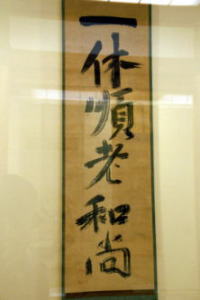 一休順老和尚